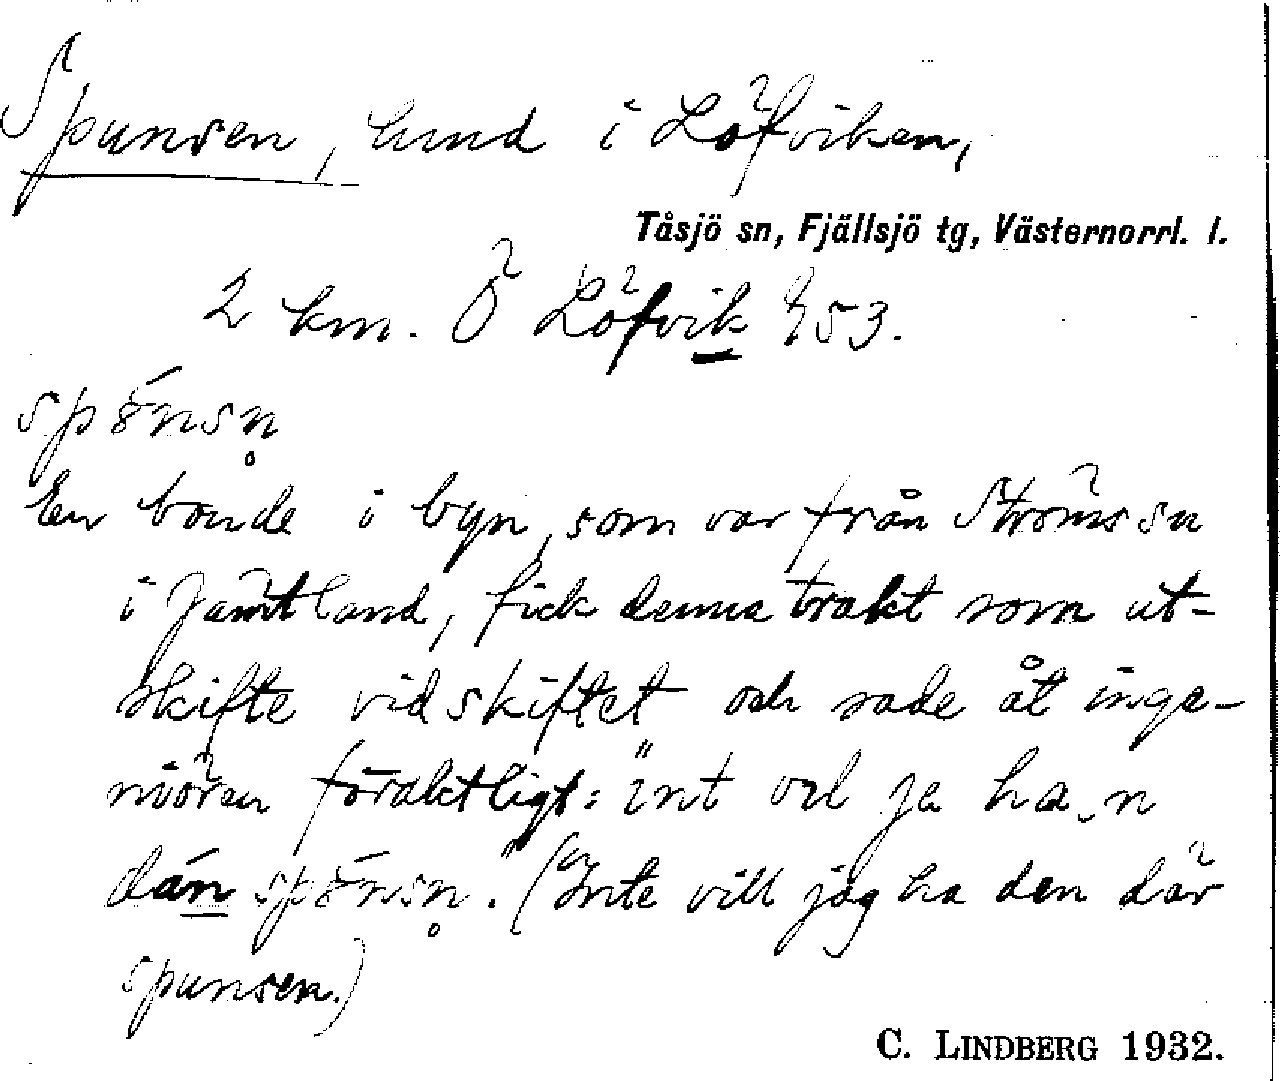 Spunsen, lund i Löfviken,
Tåsjö sn, Fjällsjö tg, Västernorrl. l.
2 km. Ö Löfvik 53.
spö́nsn̥
En bonde i byn, som var från Ströms sn
i Jämtland, fick denna trakt som ut-
skifte vid skiftet och sade åt inge-
niören föraktligt: "int vel ja ha‿n
dán spö́nsn̥." (Inte vill jag ha den där
spunsen.)
C. LINDBERG 1932.